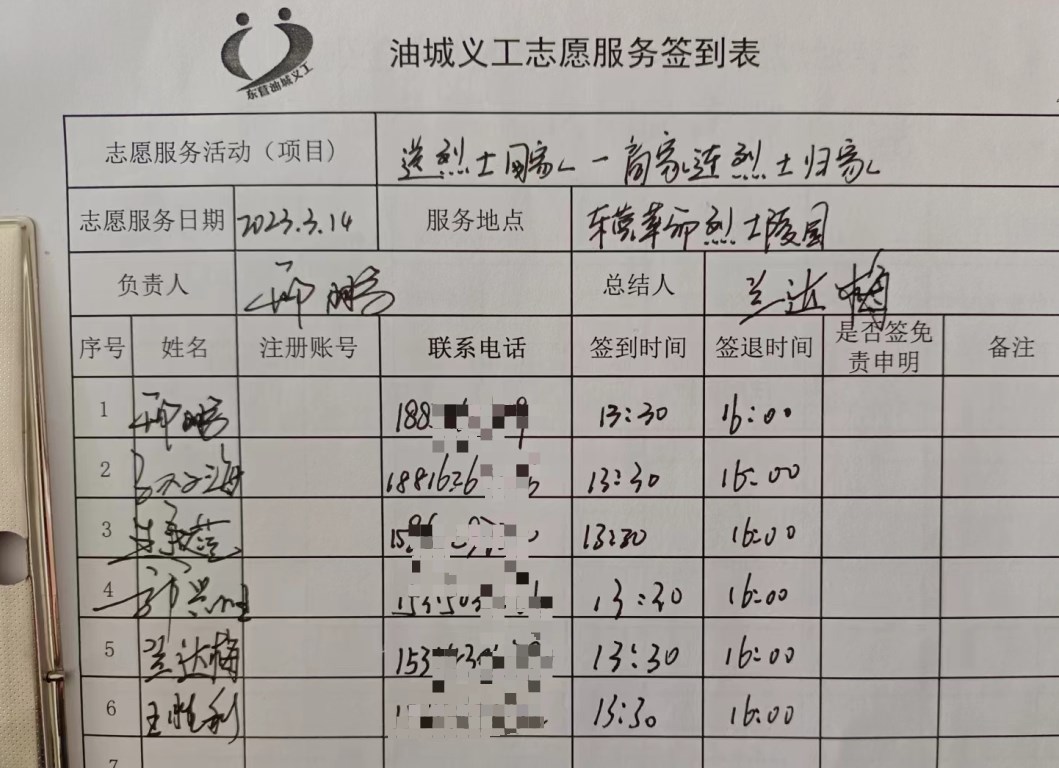 东营油城义工
油城义工志愿服务签到表
志愿服务活动（项目） 送烈士回家一商家连烈士归家
志愿服务日期 2023.3.14 服务地点 东营革命烈士陵园
负责人 鹏 总结人 兰达梅
序号 姓名 注册账号 联系电话 签到时间 签退时间 是否签免责申明 备注
1 鹏 188 13:30 16:00
2 海 1881626 13:30 16:00
3 13:30 16:00
4 13:30 16:00
5 兰达梅 153 13:30 16:00
6 王胜利 13:30 16:00
7